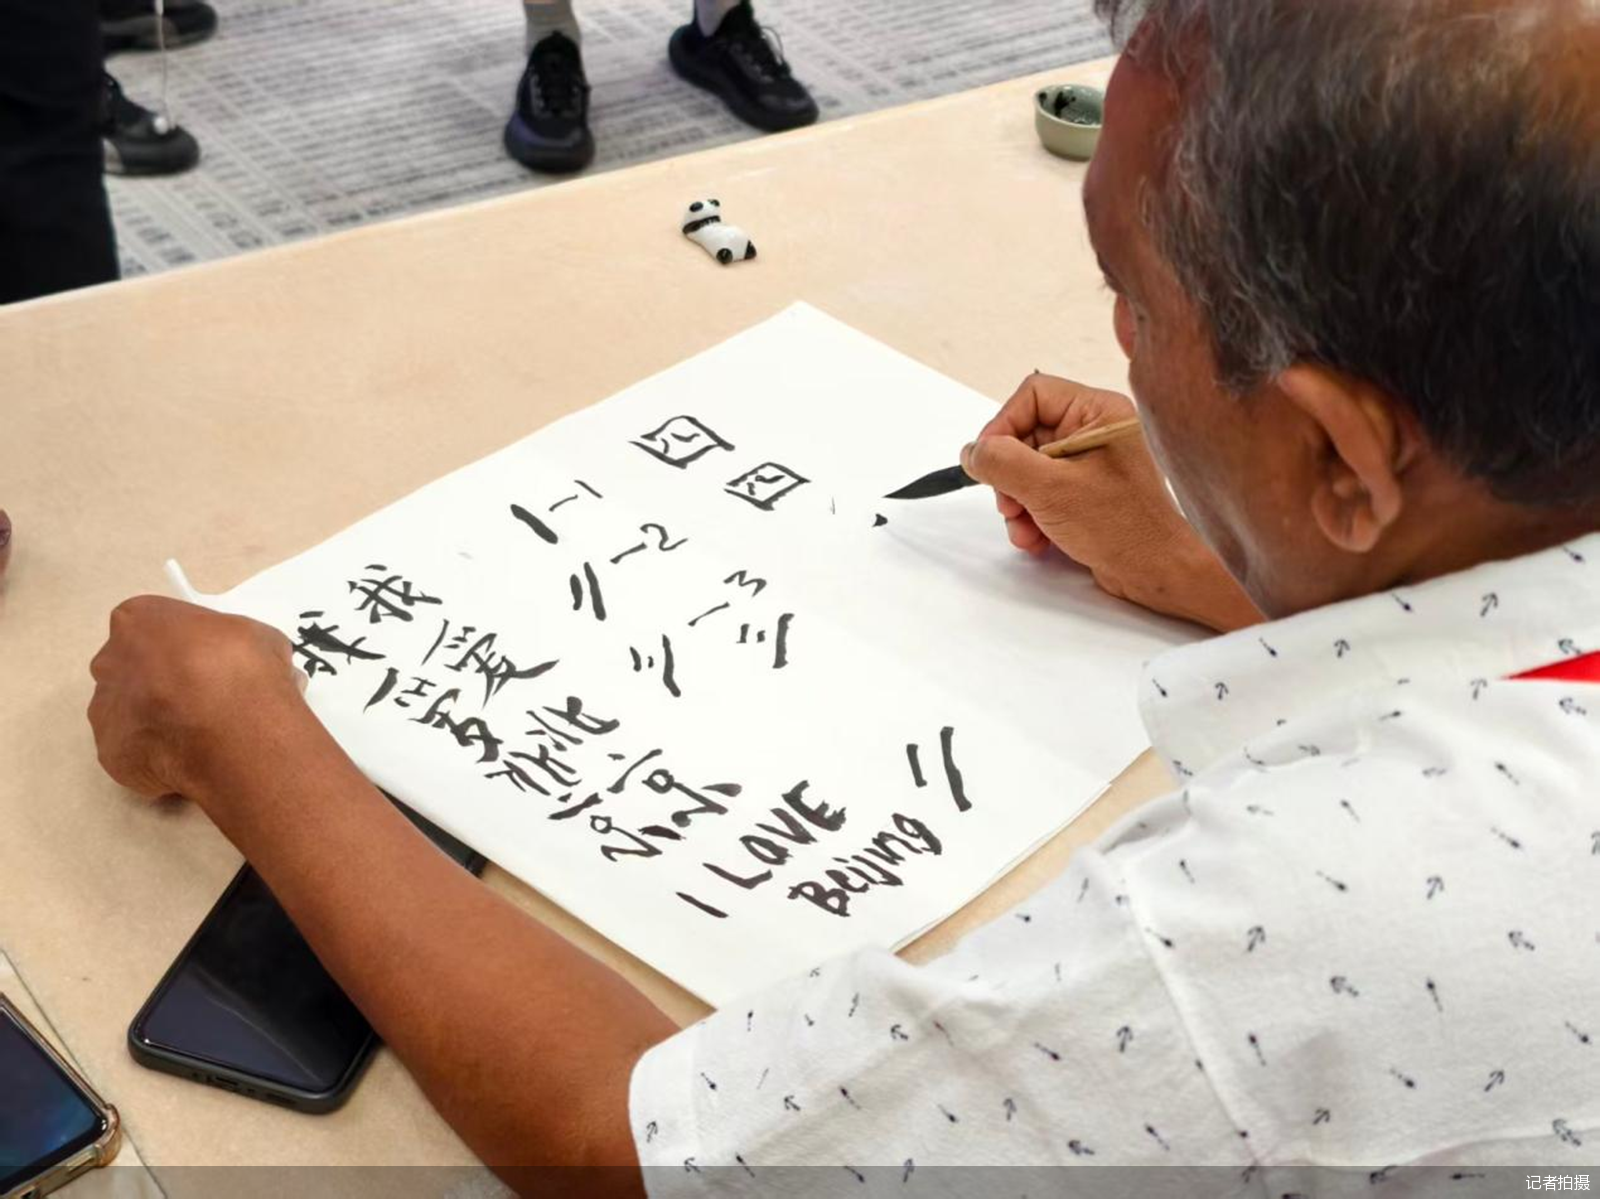 四
四
一-1
二-2
三-3
三
我爱北京
我爱北京
I LOVE
Beijing
二
记者拍摄